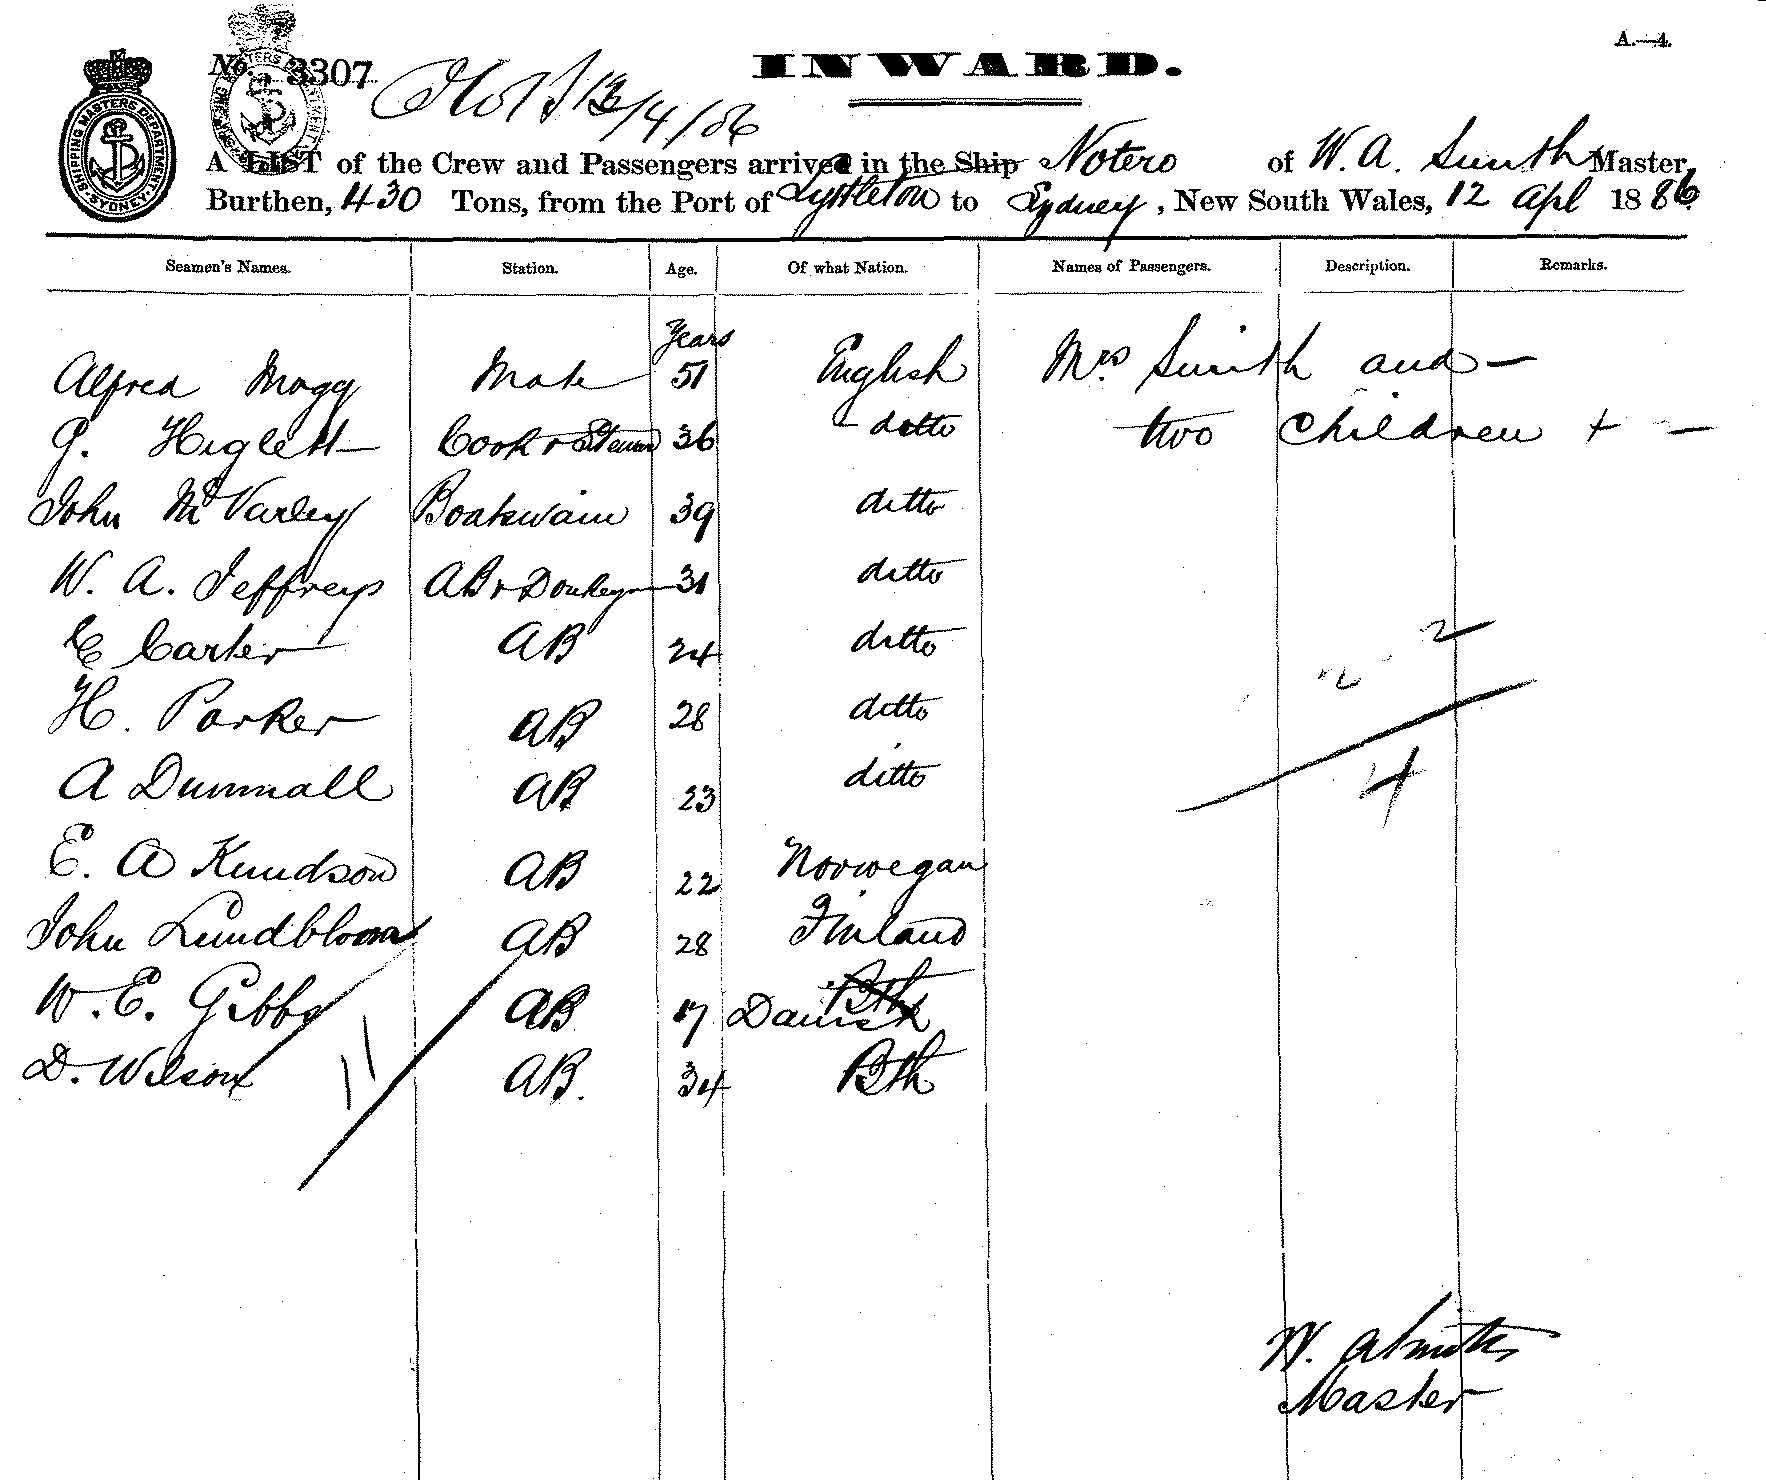 A.—4.
No. 3307
INWARD.
13/4/86
SHIPPING MASTERS DEPARTMENT SYDNEY
A LIST of the Crew and Passengers arrived in the Ship Notero of W. A. Smith Master,
Burthen, 430 Tons, from the Port of Lyttleton to Sydney, New South Wales, 12 Apl 1886
Seamen's Names. Station. Age. Of what Nation. Names of Passengers. Description. Remarks.
Years
Alfred Mogg Mate 51 English Mrs Smith and —
G. Higlett Cook & Steward 36 ditto two children + —
John McVarley Boatswain 39 ditto
W. A. Jeffreys AB & Donkeyman 31 ditto
E Carter AB 24 ditto 2
H. Parker AB 28 ditto 2
A Dummall AB 23 ditto 4
E. A Knudson AB 22 Norwegan
John Lundbloom AB 28 Finland
W. E. Gibbs AB 17 Danish Bth
D. Wilson AB. 34 Bth
11
W. A Smith
Master